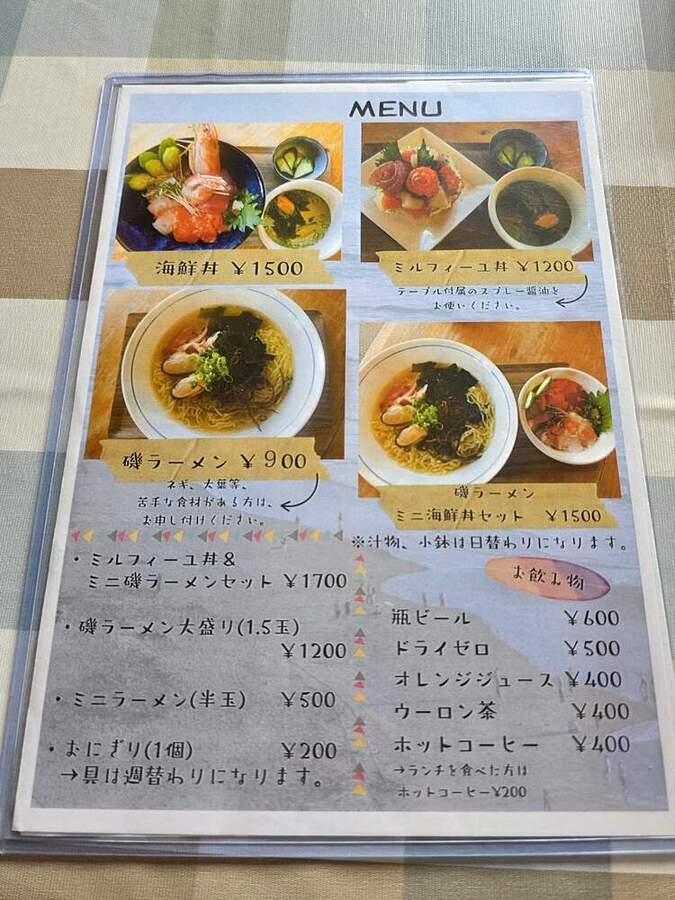 MENU
海鮮丼 ¥1500
ミルフィーユ丼 ¥1200
テーブル付属のスプレー醤油を
お使いください。
磯ラーメン ¥900
ネギ、大葉等、
苦手な食材がある方は、
お申し付けください。
磯ラーメン
ミニ海鮮丼セット ¥1500
※汁物、小鉢は日替わりになります。
・ミルフィーユ丼&
ミニ磯ラーメンセット ¥1700
・磯ラーメン大盛り(1.5玉)
¥1200
・ミニラーメン(半玉) ¥500
・おにぎり(1個) ¥200
→具は週替わりになります。
お飲み物
瓶ビール ¥600
ドライゼロ ¥500
オレンジジュース ¥400
ウーロン茶 ¥400
ホットコーヒー ¥400
→ランチを食べた方は
ホットコーヒー¥200